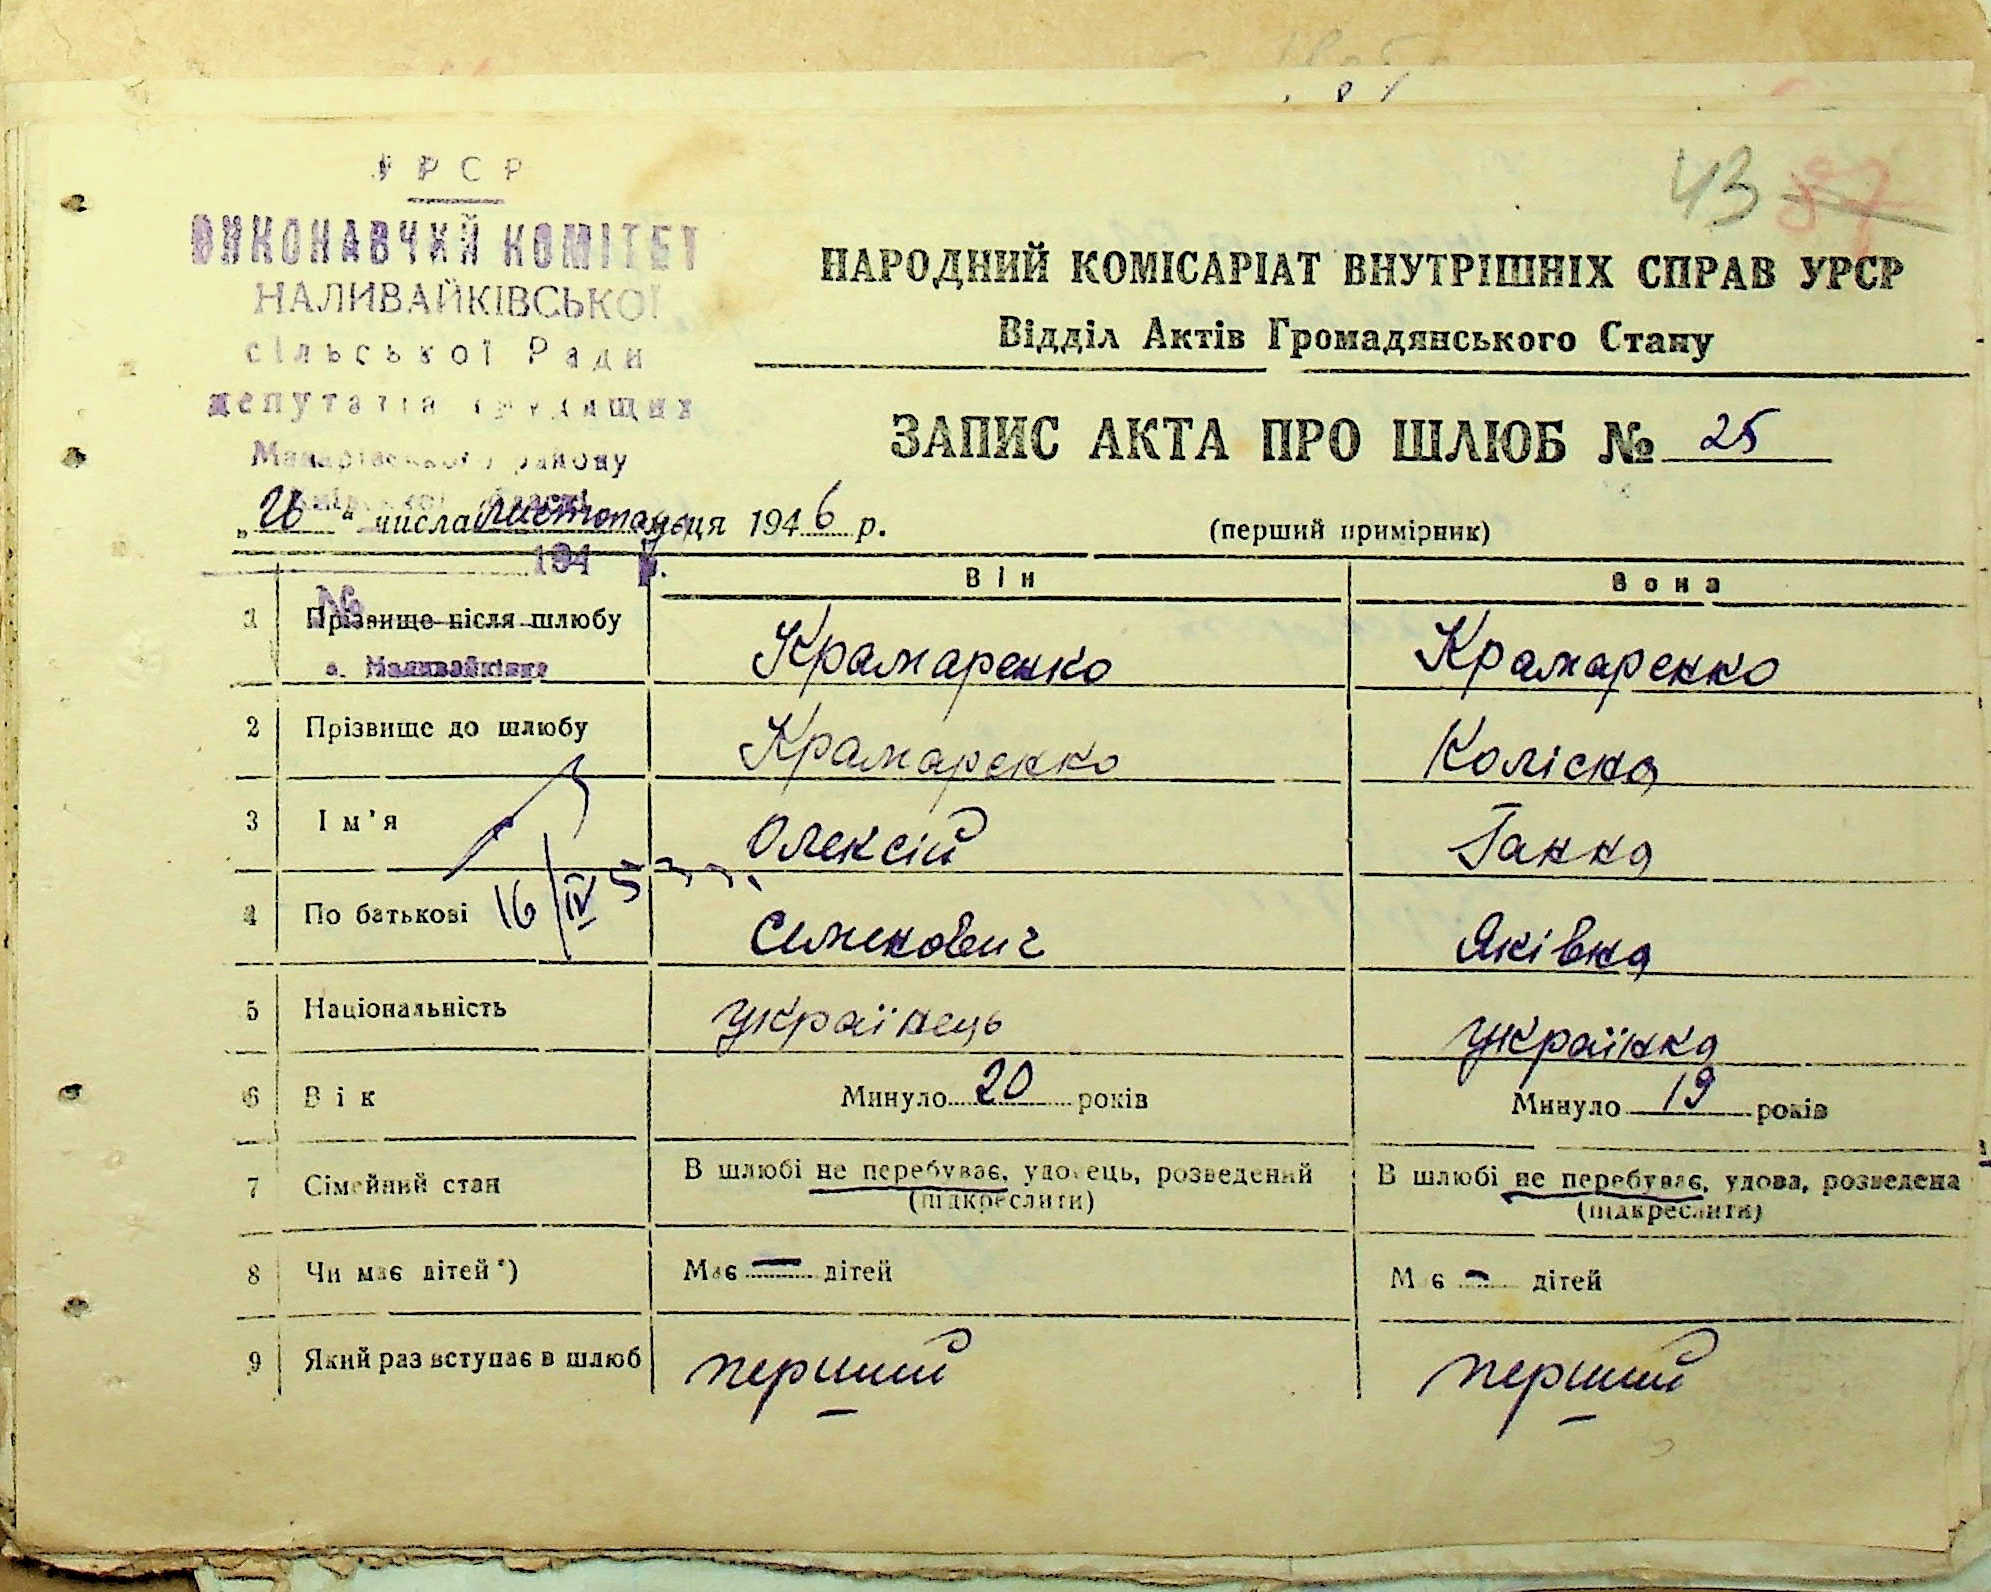 УРСР
ВИКОНАВЧИЙ КОМІТЕТ
НАЛИВАЙКІВСЬКОЇ
сільської Ради
депутатів трудящих
Макарівського району
Київської області
194 р.
№
с. Наливайківка
43 87
НАРОДНИЙ КОМІСАРІАТ ВНУТРІШНІХ СПРАВ УРСР
Відділ Актів Громадянського Стану
ЗАПИС АКТА ПРО ШЛЮБ № 25
„26“ числа листопад м-ця 1946 р. (перший примірник)
Він Вона
1 Прізвище після шлюбу Крамаренко Крамаренко
2 Прізвище до шлюбу Крамаренко Коліска
3 Ім'я Олексій Ганна
4 По батькові Семенович Яківна
16/IV 53 р.
5 Національність українець українка
6 Вік Минуло 20 років Минуло 19 років
7 Сімейний стан В шлюбі не перебуває, удовець, розведений В шлюбі не перебуває, удова, розведена
(підкреслити) (підкреслити)
8 Чи має дітей*) Має — дітей Має — дітей
9 Який раз вступає в шлюб перший перший